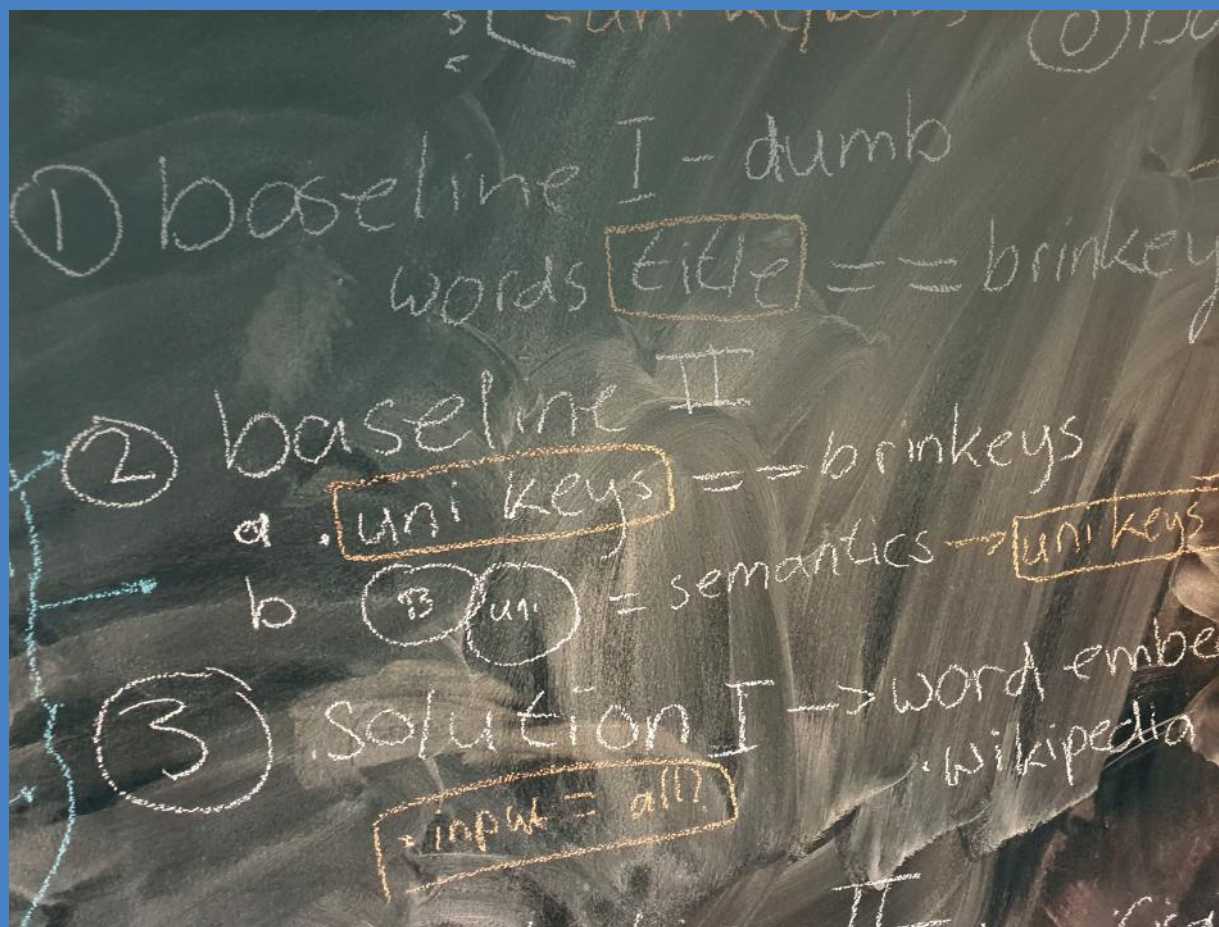 ① baseline I - dumb
words title == brinkey
② baseline II
a. uni keys == brinkeys
b B uni = semantics → unikeys
③ .solution I -> word embe
.wikipedia
.input = all?
II